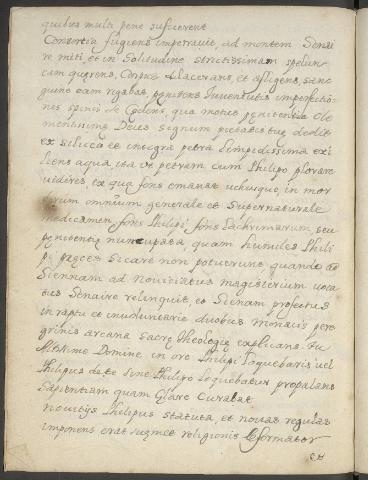 quibus multi pene sufficerent
Consortia fugiens imperavit, ad montem Senai
re miti, et in Solitudine strictissimam spelun
cam querens, Corpus dilacerans, et affligens, sanc
guine eam rigabat, penitens Juventutis imperfectio
nes spinis de Celens qua motus penitentia Cle
mentissime Deus segnum pietatis tue dedit
ex silicea et integra petra limpidissima exi
liens aqua, ita ut petram cum Philipo plorare
videres, ex qua fons emanat uhusque, in mor
borum omnium generale et Supernaturale
medicamen fons Philipi fons Lachrimarum, seu
penitentie nuncupata, quam humiles Phili
pi preces sicare non potuerunt quando ad
Siennam ad Novitiatus magisterium voca
tus Senaire relinquit, et Sienam profectus
in raptu et involuntarie duobus monacis pere
grinis arcana Sacre Theologie explicans. Tu
Altissime Domine in ore Philipi loquebaris vel
Philipus de te sine Philipo loquebatur propalans
Sapientiam quam Clare Curabat
Novitijs Philipus statuta, et novas regulas
imponens erat suemet religionis Reformator